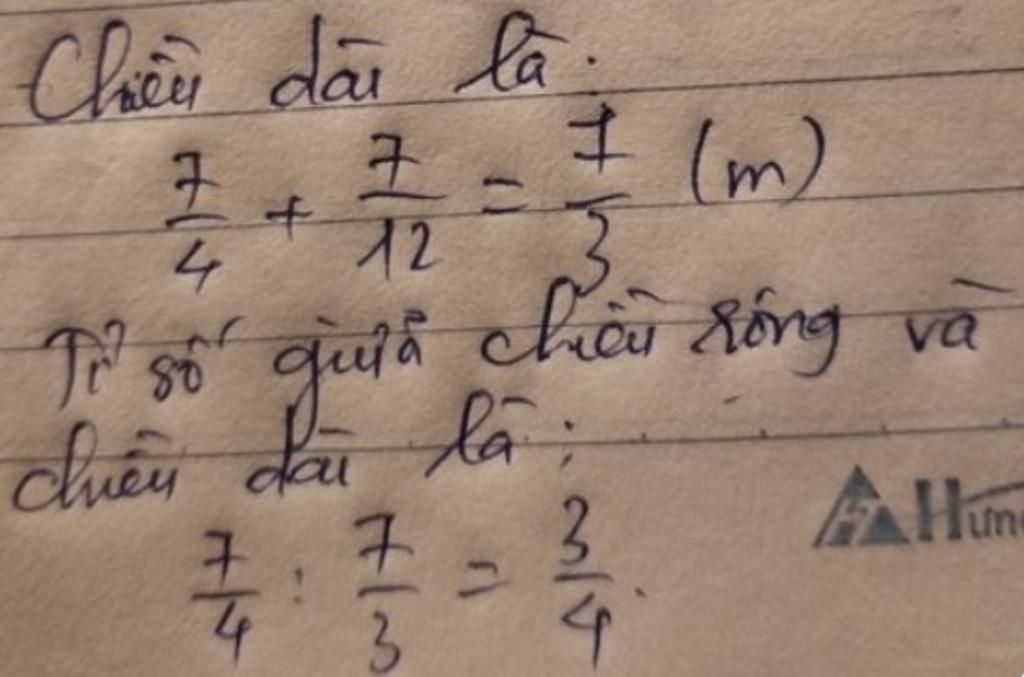 Chiều dài là:
7/4 + 7/12 = 7/3 (m)
Tỉ số giữa chiều rộng và
chiều dài là:
Hưng
7/4 : 7/3 = 3/4.